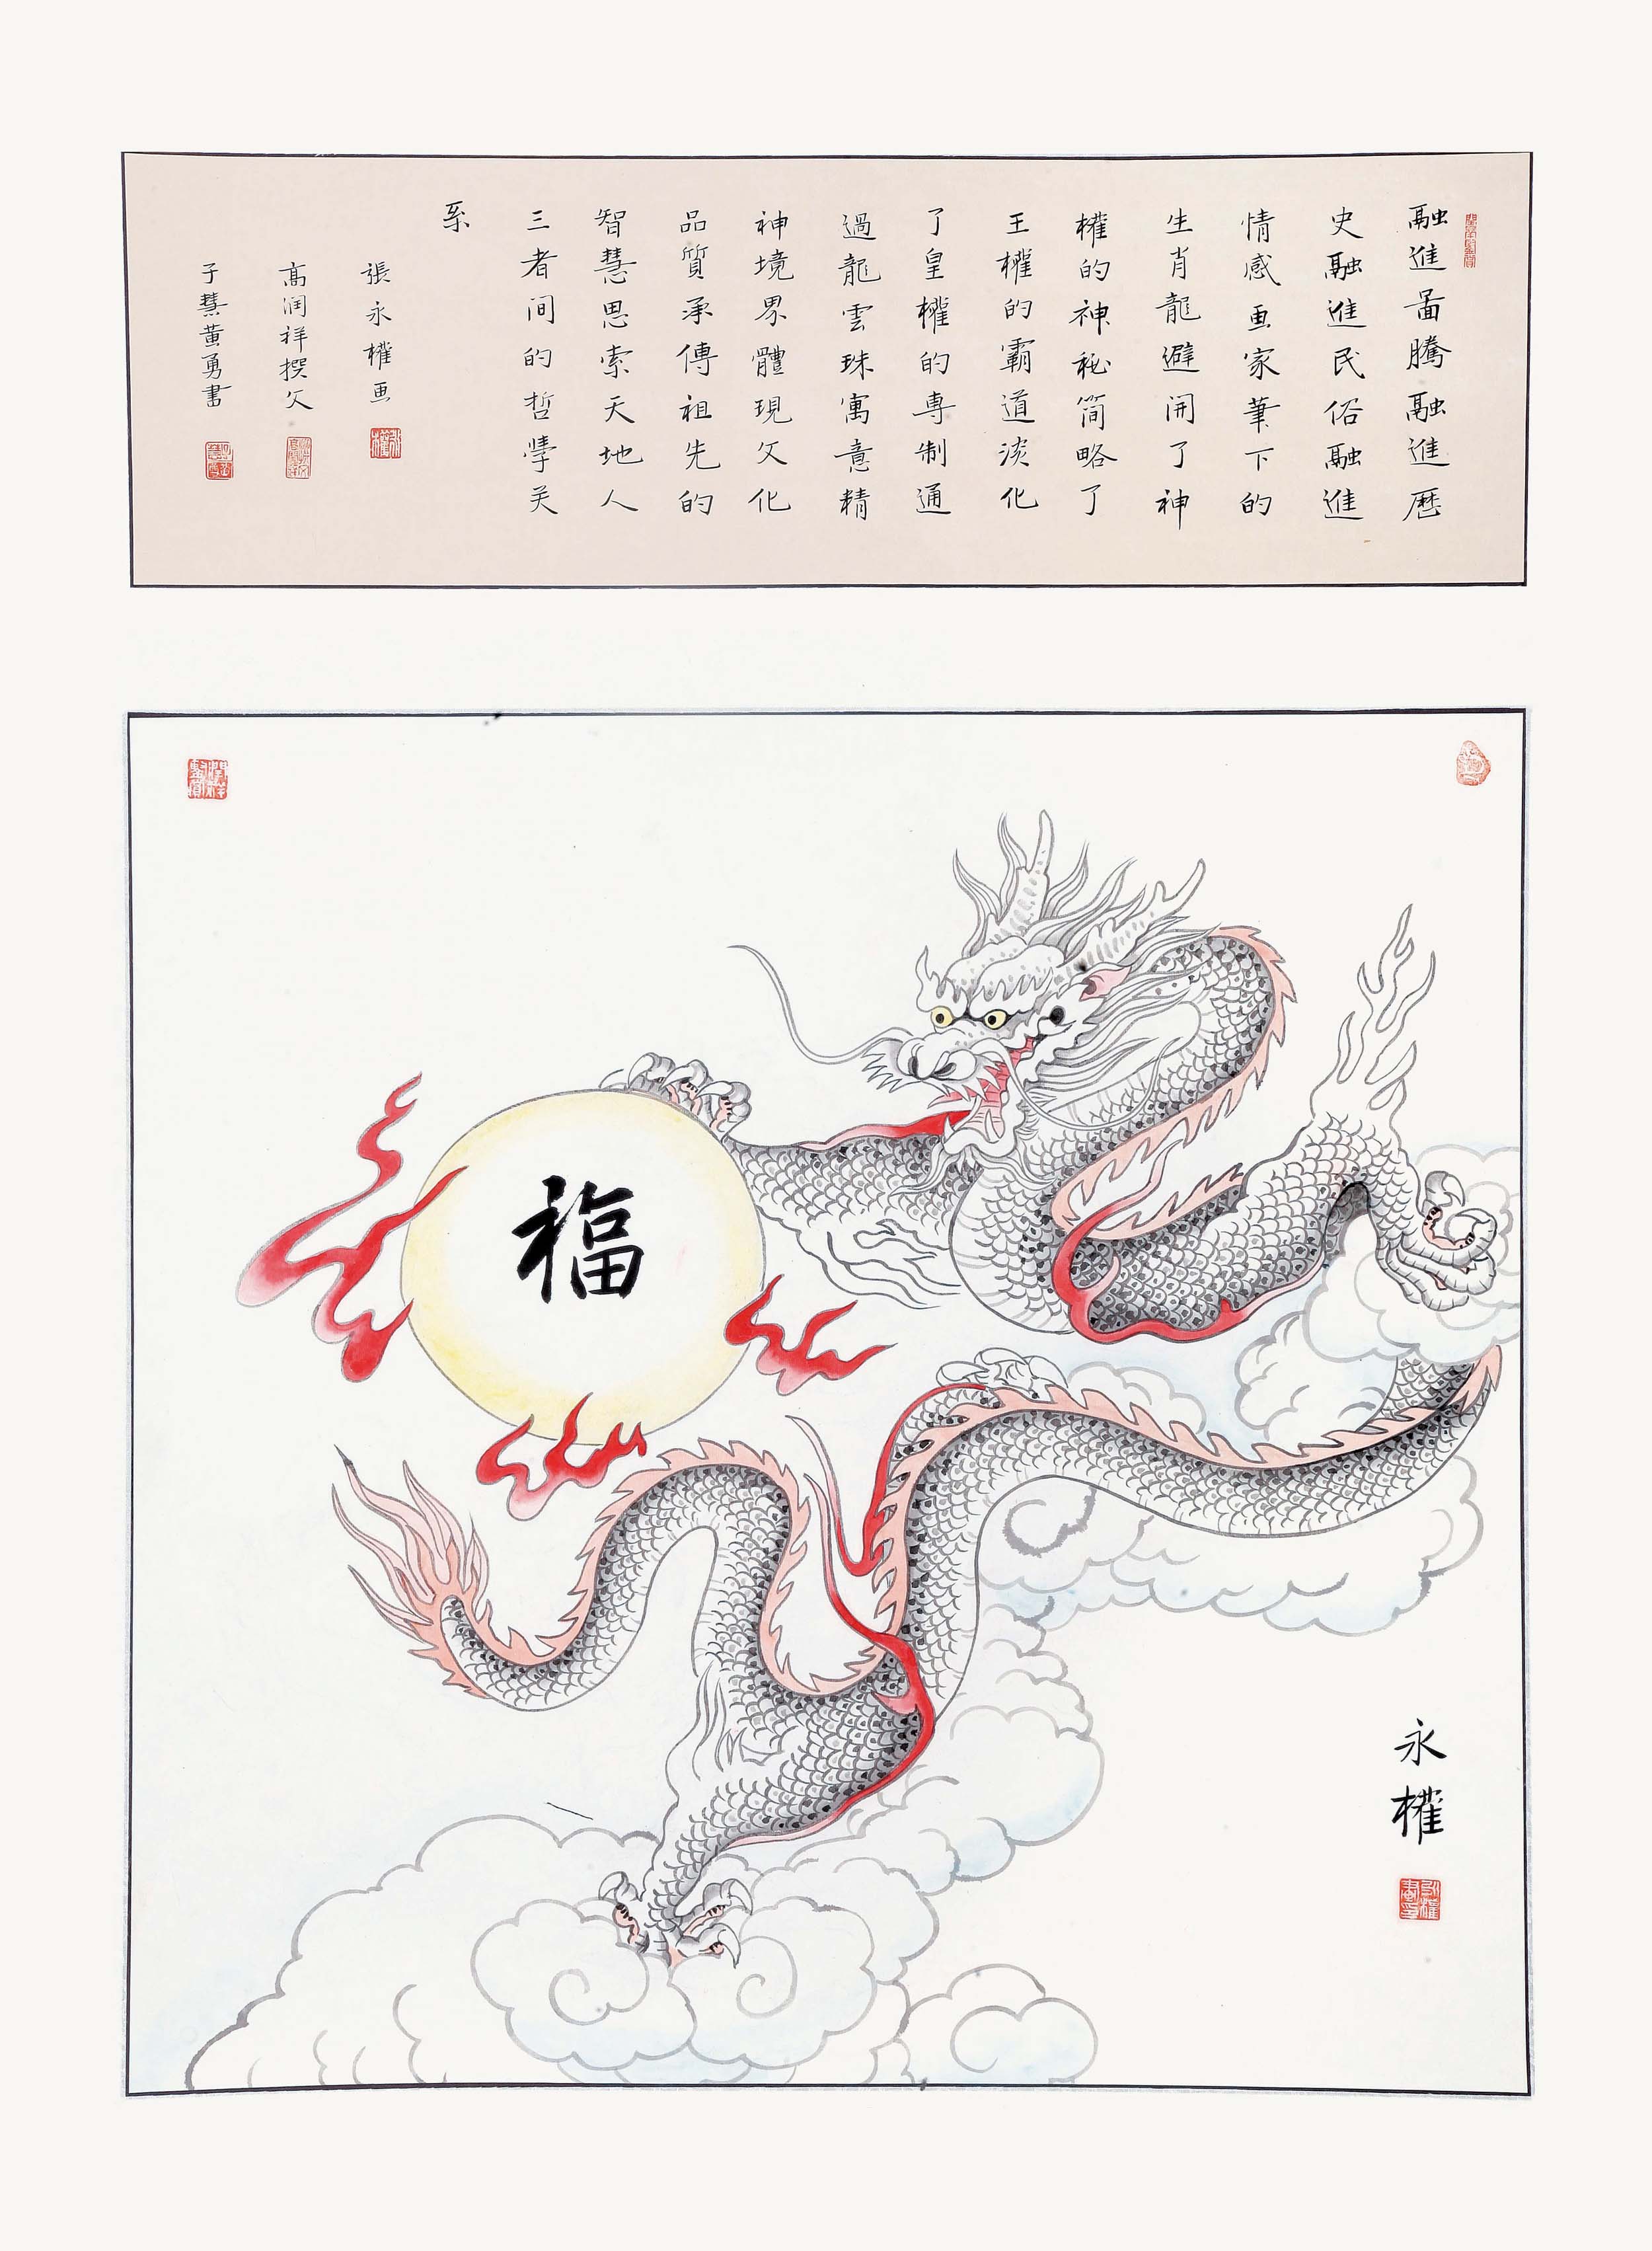 融進啚騰融進歷
史融進民俗融進
情感画家筆下的
生肖龍避開了神
權的神祕简略了
王權的霸道淡化
了皇權的專制通
過龍雲珠寓意精
神境界體現文化
品質承傳祖先的
智慧思索天地人
三者间的哲學关
系
張永權画
高润祥撰文
子慧黃勇書
福
永權